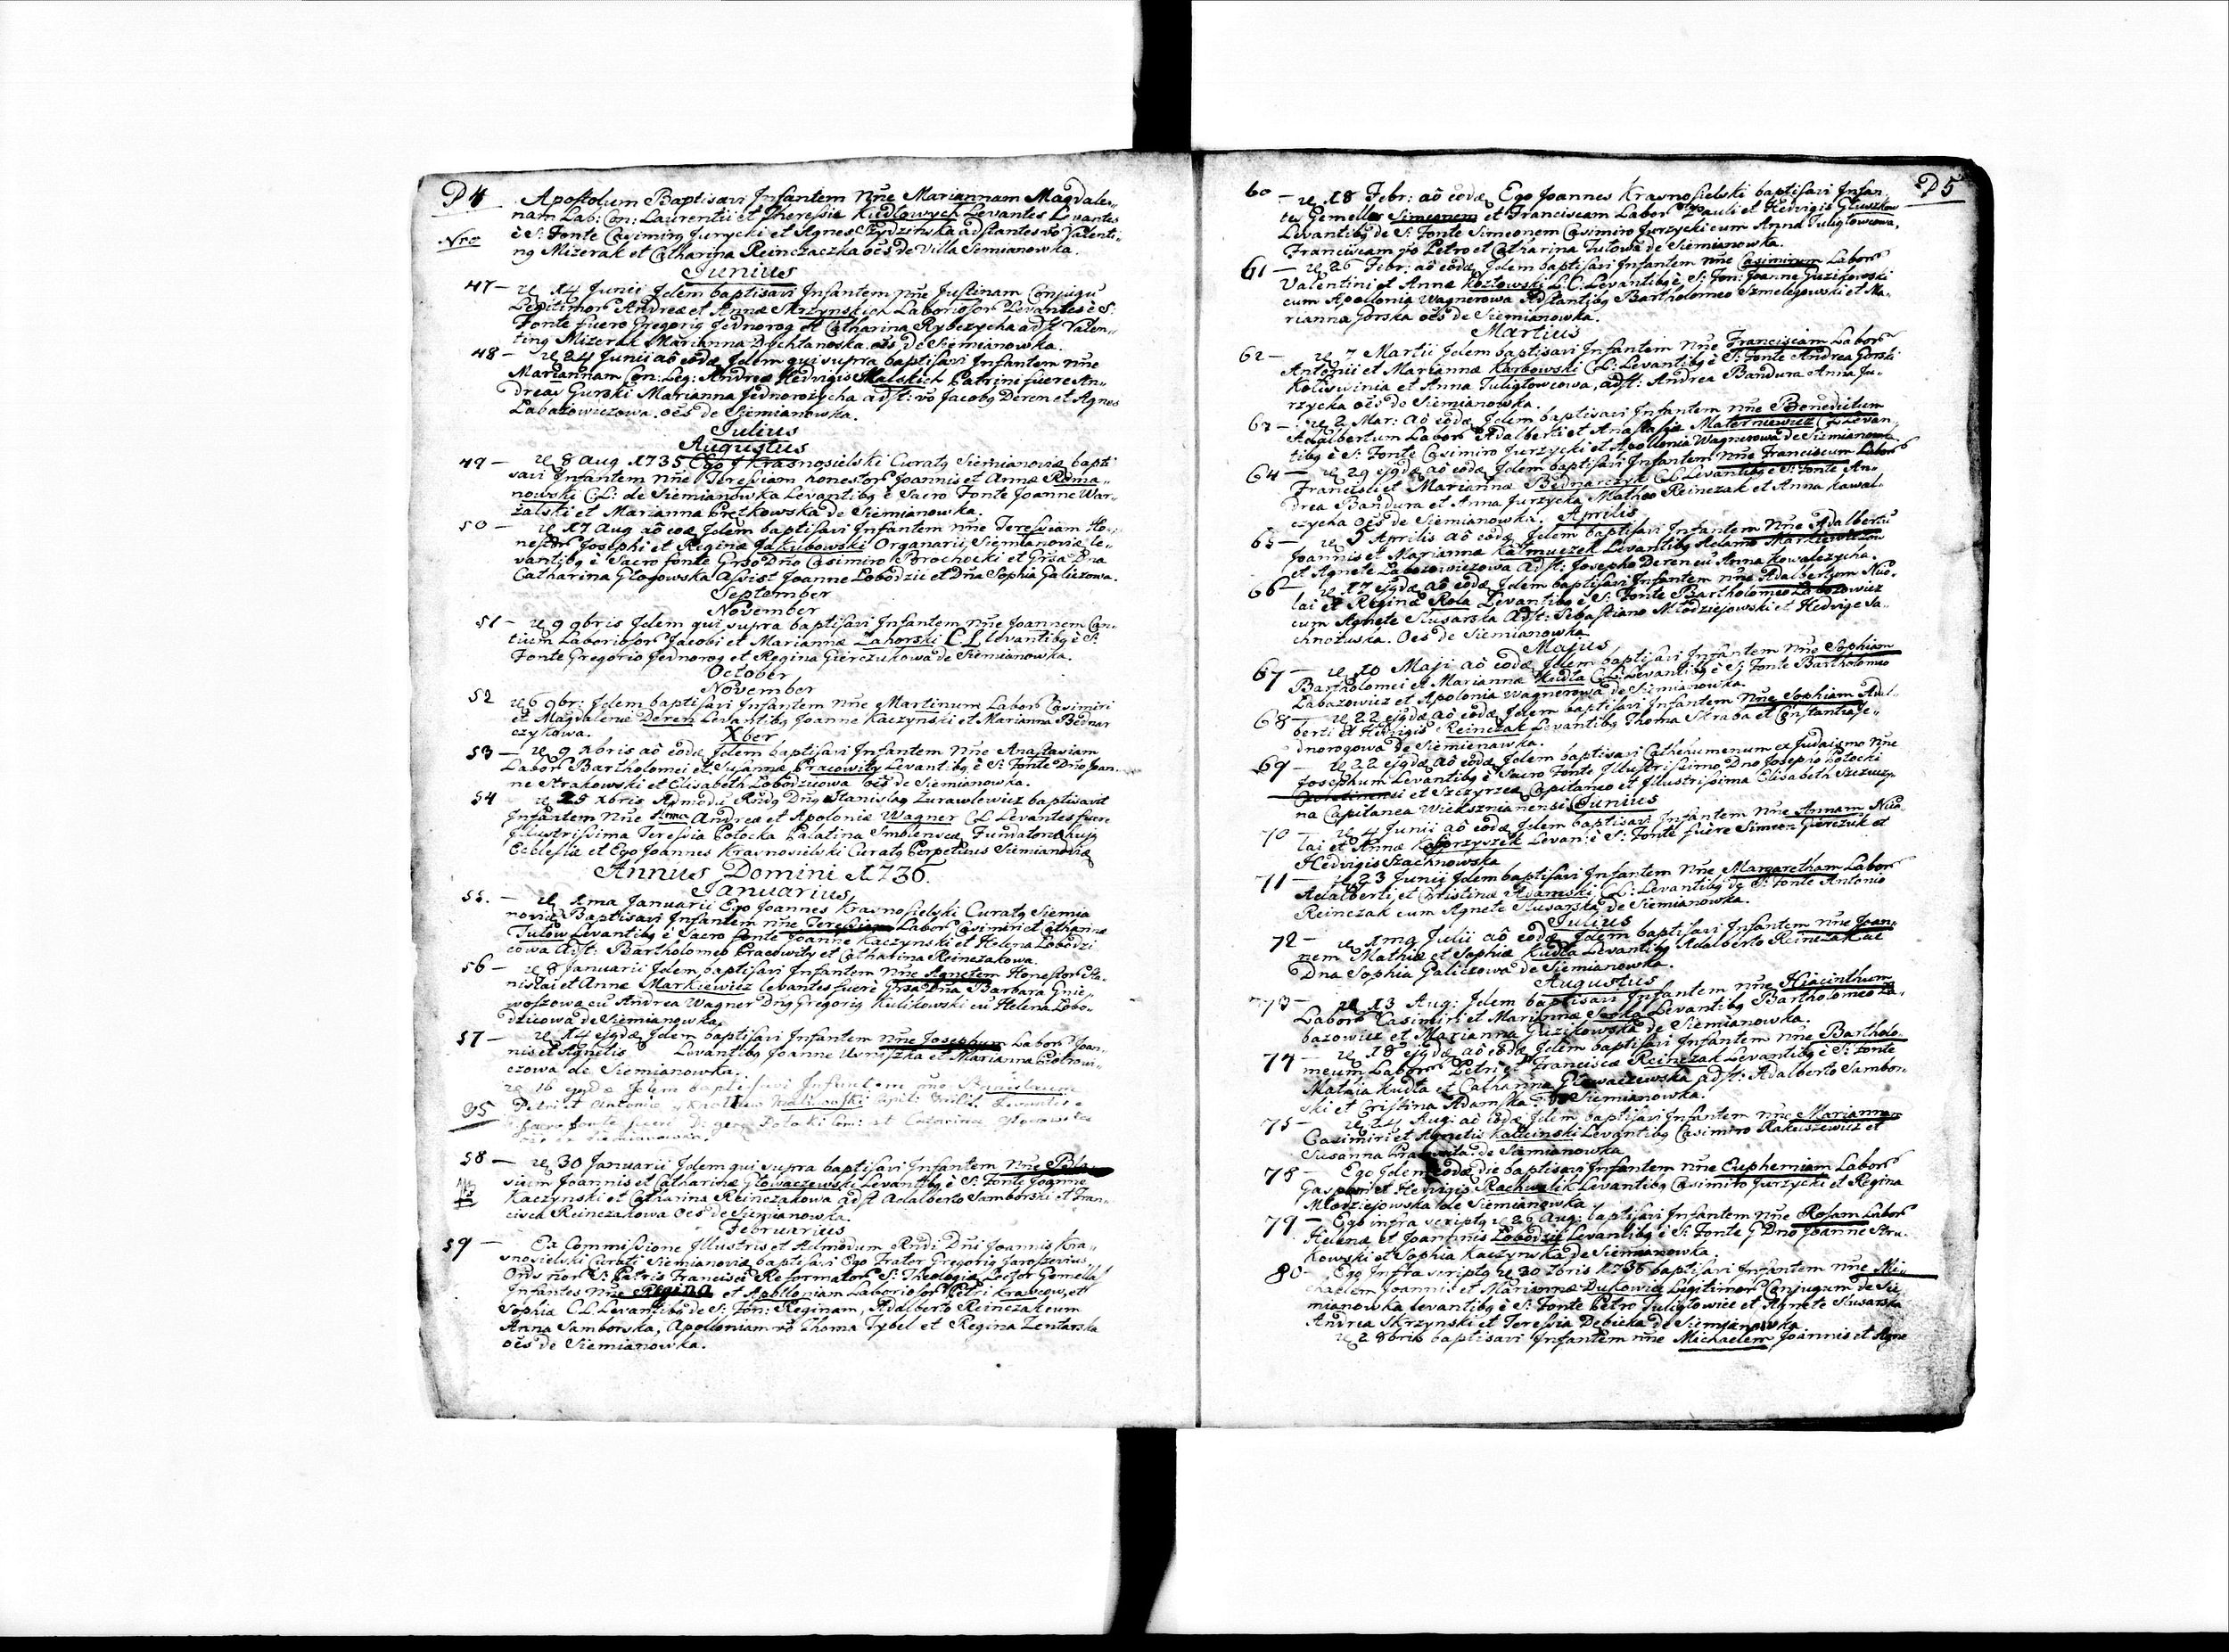 P4
Apostolum Baptisavi Infantem Nne Mariannam Magdale„
nam Lab: Con: Laurentii et Theressiæ Kudłowych Levantes Levantes
è S: Fonte Casimirg Jurycki et Agnes adstantes vo Valenti„
Nro
ng Mizerak et Catharina Reinczaczka oes de Villa Semianowka.
Junius
47 — 14 Junii Idem baptisavi Infantem nne Justinam Conjugu
Legitimor Andreæ et Annæ Skrzynskich Laboriosor Levantes è S:
Fonte fuero Gregorig Jednorog et Catharina Rybczycha adst: Valen„
ting Mizerak Marianna Dochtanoska oes de Siemianowka.
48 — 24 Junii aô eodæ Idem qui supra baptisavi Infantem nne
Mariannam Con: Leg: Andreæ Hedvigis Malskich Patrini fuere An„
dreas Gurski Marianna Jednorozycha adst: vo Jacobg Deren et Agnes
Labazowiczowa. oes de Siemianowka.
Julius
Augustus
49 — 8 Aug 1735 Ego J Krasnosielski Curatg Siemianoviæ bapti
savi Infantem nne Teressiam honestor Joannis et Annæ Roma„
nowski C.L: de Siemianowka Levantibg è Sacro Fonte Joanne War„
zalski et Marianna Prętkowska de Siemianowka.
50 — 17 Aug aô eoæ Idem baptisavi Infantem nne Teressiam Ho„
nestor Josephi et Reginæ Jakubowski Organarii Siemianoviæ le„
vantibg è Sacro fonte Grso Dño Casimiro Brochocki et Grsa Dna
Catharina Głogowska Assist Joanne Łobodzii et Dna Sophia Galiczowa.
September
November
51 — 9 9bris Idem qui supra baptisavi Infantem nne Joannem Can„
tium Laboriosor Jacobi et Mariannæ Zahorski C L levantibg è S:
Fonte Gregorio Jednorog et Regina Gierczukowa de Siemianowka.
October
November
52 6 9br: Idem baptisavi Infantem nne Martinum Labor Casimiri
et Magdalenæ Deren Levantibg Joanne Kaczynski et Marianna Bednar
czykowa.
Xber
53 — 9 Xbris aô eodæ Idem baptisavi Infantem nne Anastasiam
Labor Bartholomei et Susannæ Pracowity Levantibg è S: Fonte Dño Joan„
ne Strakowski et Elisabeth Lobodziiowa oes de Siemianowka.
54 25 Xbris Admodu Rndg Dng Stanislag Żurawlewicz baptisavit
Infantem nne Andreæ et Apoloniæ Wagner C L Levantes fuere
Illustrissima Teressia Potocka Palatina Smolensca Fundatona hujg
Ecclesiæ et Ego Joannes Krasnosielski Curatg Perpetuus Siemianoviæ
Annus Domini 1736.
Januarius
55. — 1ma Januarii Ego Joannes Krasnosielski Curatg Siemia
noviæ Baptisavi Infantem nne Teressiam Labor Casimiri et Catharinæ
Tutow Levantibg è Sacro fonte Joanne Kaczynski et Helena Lobodzi
cowa Adst: Bartholomeo Pracowity et Catharina Reinczakowa.
56 — 8 Januarii Idem baptisavi Infantem nne Agnetem Honestor Sta„
nislai et Annæ Markiewicz levantes fuerè Grsa Dna Barbara Gnie„
woszowa cu Andrea Wagner Dng Gregorig Kulikowski cu Helena Lobo„
dzicowa de Siemianowka.
57 — 14 ejgdæ Idem baptisavi Infantem nne Josephum Labor Joan„
nis et Agnetis Levantibg Joanne et Marianna Piotrowi„
czowa de Siemianowka.
16 ejgdæ Idem baptisavi Infantem nne Stanislaum
P5 Petri et Antoniæ
sacro fonte fuere Potocki et Catarina Głogowska
de Siemianowka.
58 — 30 Januarii Idem qui supra baptisavi Infantem nne
Joannis et Catharinæ Głowaczewski Levantibg è S: Fonte Joanne
Kaczynski et Catharina Reinczakowa adst Adalberto Samborski et Fran„
cisca Reinczakowa oes de Siemianowka.
Februarius
59 — Ex Commissione Illustris et Admodum Rndi Dni Joannis Kra„
snosielski Curati Siemianoviæ baptisavi Ego Frater Gregorig Jaroszevius
Ords nor S: Patris Francisci Reformator S: Theologiæ Lector Gemellas
Infantes nne Regina et Apolloniam Laboriosor Petri Krawcow, et
Sophia C L Levantibg de S: Fon: Reginam, Adalberto Reinczak cum
Anna Samborska, Apolloniam vô Thoma Tybel et Regina Zentarska
oes de Siemianowka.
P5
60 — 18 Febr: aô eodæ Ego Joannes Krasnosielski baptisavi Infan„
tes Gemellos Simeonem et Franciscam Labor Pauli et Hedvigis Głuszkow
Levantibg de S: Fonte Simeonem Casimiro Jurzycki cum Anna Tuligłowcowa,
Franciscam vo Petro et Catharina Tutowa de Siemianowka.
61 — 26 Febr: aô eodæ Idem baptisavi Infantem nne Casimirum Labor
Valentini et Annæ Kozłowski L: C: Levantibg è S: Fon: Joanne Guzikowski
cum Apollonia Wagnerowa Adstantibg Bartholomeo Szmelejowski et Ma„
rianna Gorska oes de Siemianowka.
Martius
62 — 7 Martii Idem baptisavi Infantem nne Franciscam Labor
Antonii et Mariannæ Karbowski C L: Levantibg è S: Fonte Andrea Gorski
Koliswinia et Anna Tuligłowcowa, adst: Andrea Bandura Anna Ju„
rzycka oes de Siemianowka.
63 — 2 Mar: aô eodæ Idem baptisavi Infantem nne Benedictum
Adalbertum Labor Adalberti et Anastasiæ Materniewicz C L Levan„
tibg è S: Fonte Casimiro Jurzycki et Apollonia Wagnerowa de Siemianowa
64 — 29 ejgdæ aô eodæ Idem baptisavi Infantem nne Franciscum Labor
Francisci et Mariannæ Bednarczyk C L Levantibg è S: Fonte An„
drea Bandura et Anna Jurzycka Matheo Reinczak et Anna Kawal„
czycha oes de Siemianowka.
Aprilis
65 — 5 Aprilis aô eodæ Idem baptisavi Infantem nne Adalbertu
Joannis et Mariannæ Kałmuczek Levantibg Adamo Markiewiczow
et Agnete Labazowiczowa adst: Josepho Deren cu Anna Kowalczycha.
66 — 17 ejgdæ aô eodæ Idem baptisavi Infantem nne Adalbertum Nico„
lai et Reginæ Rola Levantibg è S: Fonte Bartholomeo Labazowicz
cum Agnete Slusarska Adst: Sebastiano Młodziejowski et Hedvige Sa„
chnozuska. Oes de Siemianowka.
Majus
67 — 10 Maji aô eodæ Idem baptisavi Infantem nne Sophiam
Bartholomei et Mariannæ Kudła C L: Levantibg è S: Fonte Bartholomeo
Labazowicz et Apolonia Wagnerowa de Siemianowka.
68 — 22 ejgdæ aô eodæ Idem baptisavi Infantem nne Sophiam Adal„
berti et Hedvigis Reinczak Levantibg Thoma Straba et Constantia Je„
dnorogowa de Siemienawka.
69 — 22 ejgdæ aô eodæ Idem baptisavi Cathecumenum ex Judaismo nne
Josephum Levantibg è Sacro Fonte Illustrissimo Dno Josepho Potocki
et Szczyrzec Capitaneo et Illustrissima Elisabeth Szczuzy„
na Capitanea Wieksznianensi.
Junius
70 — 4 Junii aô eodæ Idem baptisavi Infantem nne Annam Nico„
lai et Annæ Kasprzyszek Levan: è S: Fonte fuère Simeon Gierczuk et
Hedvigis Szachnowska
71 — 23 Junii Idem baptisavi Infantem nne Margaretham Labor
Adalberti et Cristinæ Adamski C L: Levantibg de S: Fonte Antonio
Reinczak cum Agnete Slusarska de Siemianowka.
Julius
72 — 1mg Julii aô eodæ Idem baptisavi Infantem nne Joan„
nem Mathiæ et Sophiæ Kudła Levantibg Adalberto Reinczak et
Dna Sophia Galiczowa de Siemianowka.
Augustus
73 — 13 Aug: Idem baptisavi Infantem nne Hiacinthum
Labor Casimiri et Mariannæ Levantibg Bartholomeo La„
bazowicz et Marianna Guzikowska de Siemianowka.
74 — 18 ejgdæ aô eodæ Idem baptisavi Infantem nne Bartholo„
meum Labor Petri et Franciscæ Reinczak Levantibg è S: Fonte
Mataia Kudła et Catharina Głowaczewska adst: Adalberto Sambor„
ski et Cristina Adamska de Siemianowka.
75 — 24 Aug: aô eodæ Idem baptisavi Infantem nne Mariannam
Casimiri et Agnetis Kalicinski Levantibg Casimiro Rakuszewicz et
Susanna de Siemianowka
76 — Ego Idem eodæ die baptisavi Infantem nne Euphemiam Labor
Gaspari et Hedvigis Rachwalik Levantibg Casimiro Jurzycki et Regina
Młodziejowska de Siemianowka.
79 — Ego infra scriptg 26 Aug: baptisavi Infantem nne Rosam Labor
Helenæ et Joannis Lobodzii Levantibg è S: Fonte G Dno Joanne Stra„
kowski et Sophia Kaczynska de Siemianowka.
80 — Ego Infra scriptg 30 7bris 1736 baptisavi Infantem nne Mi„
chaelem Joannis et Mariannæ Dukowiæ Legitimor Conjugum de Sie„
mianowka levantibg è S: Fonte Petro Tuligłowicc et Agnete Slusarska
Andrea Skrzynski et Teressia Debicka de Siemianowka
2 8bris baptisavi Infantem nne Michaelem Joannis et Agne